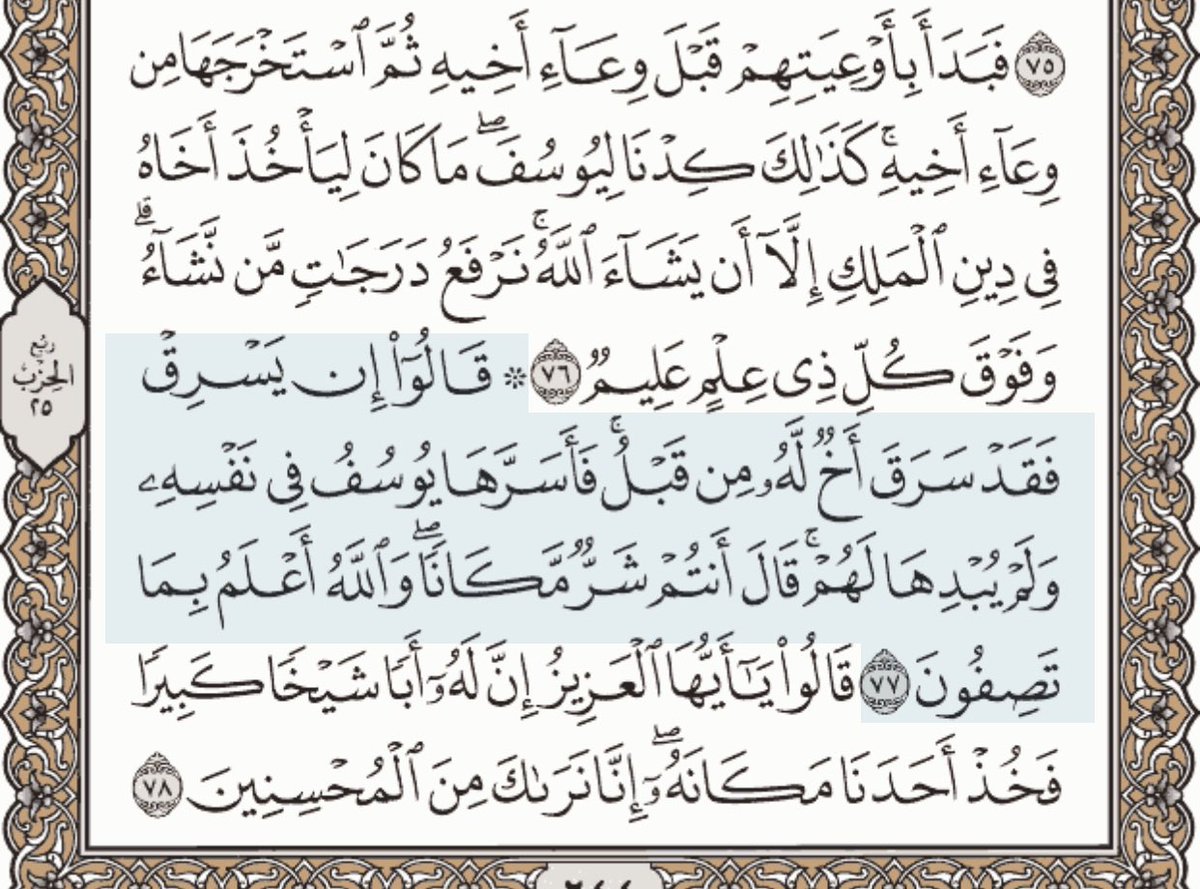 ٧٥ فَبَدَأَ بِأَوْعِيَتِهِمْ قَبْلَ وِعَآءِ أَخِيهِ ثُمَّ ٱسْتَخْرَجَهَا مِن
وِعَآءِ أَخِيهِۚ كَذَٰلِكَ كِدْنَا لِيُوسُفَۖ مَا كَانَ لِيَأْخُذَ أَخَاهُ
فِى دِينِ ٱلْمَلِكِ إِلَّآ أَن يَشَآءَ ٱللَّهُۚ نَرْفَعُ دَرَجَٰتٍ مَّن نَّشَآءُۗ
وَفَوْقَ كُلِّ ذِى عِلْمٍ عَلِيمٌ ٧٦ ۞ قَالُوٓا۟ إِن يَسْرِقْ
فَقَدْ سَرَقَ أَخٌ لَّهُۥ مِن قَبْلُۚ فَأَسَرَّهَا يُوسُفُ فِى نَفْسِهِۦ
وَلَمْ يُبْدِهَا لَهُمْۚ قَالَ أَنتُمْ شَرٌّ مَّكَانًاۖ وَٱللَّهُ أَعْلَمُ بِمَا
تَصِفُونَ ٧٧ قَالُوا۟ يَٰٓأَيُّهَا ٱلْعَزِيزُ إِنَّ لَهُۥٓ أَبًا شَيْخًا كَبِيرًا
فَخُذْ أَحَدَنَا مَكَانَهُۥٓۖ إِنَّا نَرَىٰكَ مِنَ ٱلْمُحْسِنِينَ ٧٨
رُبْع
الحِزْب
٢٥